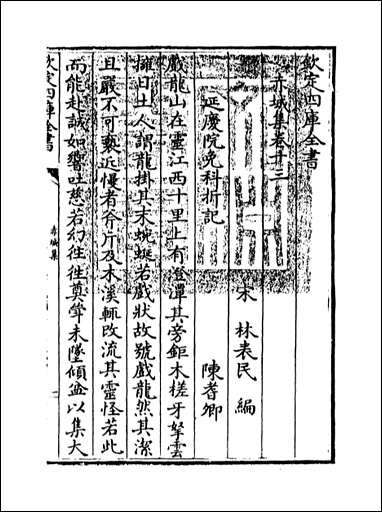 欽定四庫全書
赤城集卷十三
宋 林表民 編
延慶院免科折記 陳耆卿
戲龍山在靈江西十里上有澄潭其旁鉅木槎牙拏雲
擁日土人謂龍掛其末蜿蜒若戲狀故號戲龍然其潔
且嚴不可褻近慢者斧斤及木溪輒改流其靈怪若此
而能赴誠如響吐慈若幻往往奠斝未墜傾盆以集大
欽定四庫全書
赤城集